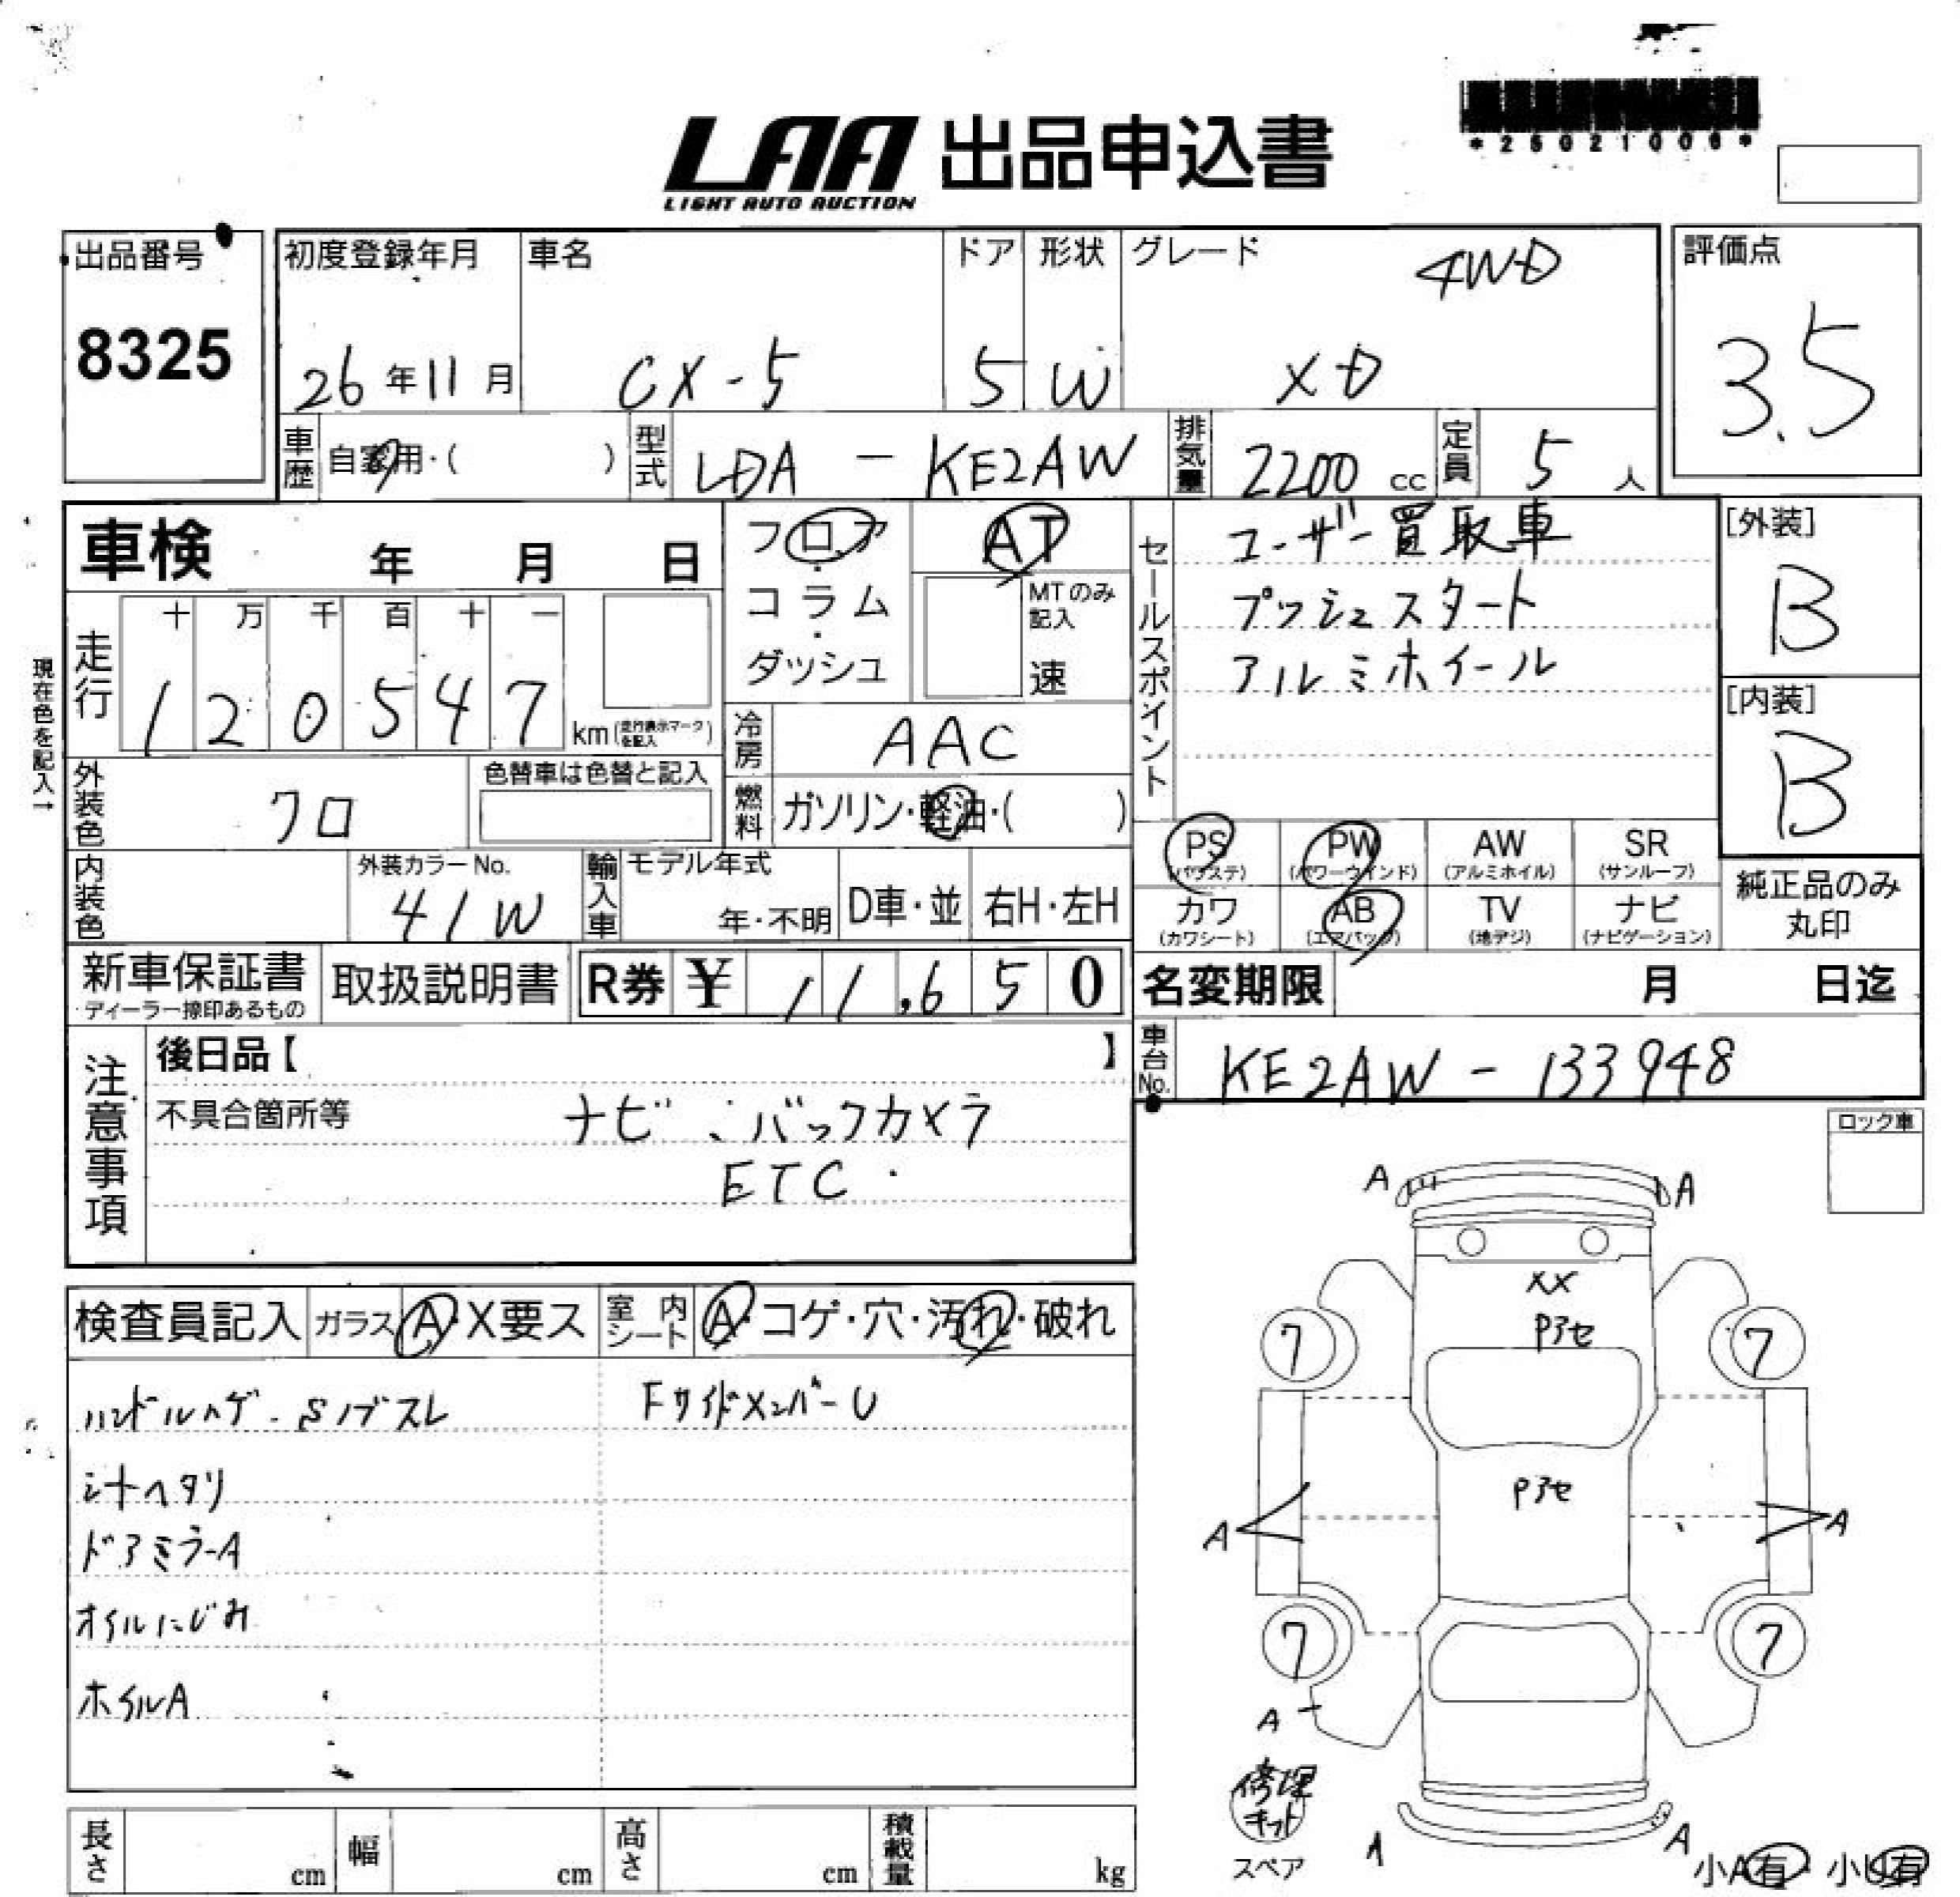 LAA 出品申込書
LIGHT AUTO AUCTION
*25021006*
出品番号
8325
初度登録年月
26年11月
車名
CX-5
ドア
5
形状
W
グレード
4WD
XD
評価点
3.5
車歴
自家用・( )
型式
LDA - KE2AW
排気量
2200 cc
定員
5人
車検 年 月 日
フロア・コラム・ダッシュ
AT
MTのみ記入
速
走行
十 万 千 百 十 一
1 2 0 5 4 7 km(走行表示マークを記入)
現在色を記入→
冷房
AAC
外装色
クロ
色替車は色替と記入
燃料
ガソリン・軽油・( )
内装色
外装カラーNo.
41W
輸入車
モデル年式
年・不明
D車・並
右H・左H
セールスポイント
ユーザー買取車
プッシュスタート
アルミホイール
[外装]
B
[内装]
B
PS (パワステ)
PW (パワーウインド)
AW (アルミホイル)
SR (サンルーフ)
カワ (カワシート)
AB (エアバッグ)
TV (地デジ)
ナビ (ナビゲーション)
純正品のみ丸印
新車保証書
・ディーラー捺印あるもの
取扱説明書
R券 ¥ 11,650
名変期限 月 日迄
車台No.
KE2AW - 133948
注意事項
後日品【 】
不具合箇所等
ナビ・バックカメラ
ETC
ロック車
検査員記入
ガラス A・X要ス
室内シート A・コゲ・穴・汚れ・破れ
ハンドルハゲ・Sノブスレ
FサイドメンバーU
シートヘタリ
ドアミラーA
オイルにじみ
ホイルA
A A
XX
Pアセ
7 7
Pアセ
A A
7 7
A
修理キット
スペア
A A
小A有・小U有
長さ cm
幅 cm
高さ cm
積載量 kg